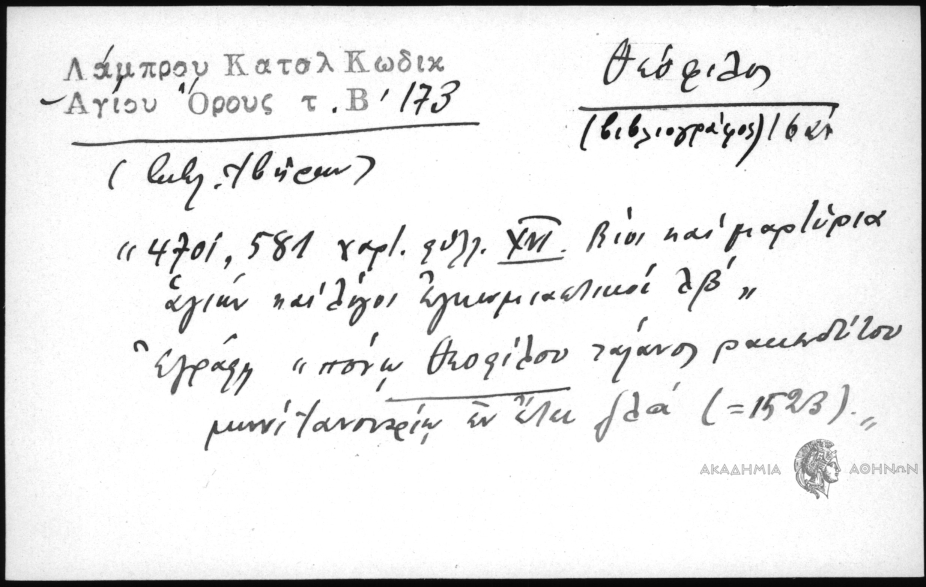 Λάμπρου Κατσλ Κωδικ
Αγίου Όρους τ. Β' 173
Θεόφιλος
(βιβλιογράφος)
(βιβλ. Ἰβήρων)
"4701, 581 χαρτ. φύλλ. XVI. Βίοι καὶ μαρτύρια
ἁγίων καὶ λόγοι ἐγκωμιαστικοί λβ'"
Ἐγράφη "πόνῳ Θεοφίλου τάλανος ρακενδύτου
μηνὶ Ἰανουαρίῳ ἐν ἔτει ζλα (=1523)."
ΑΚΑΔΗΜΙΑ ΑΘΗΝΩΝ